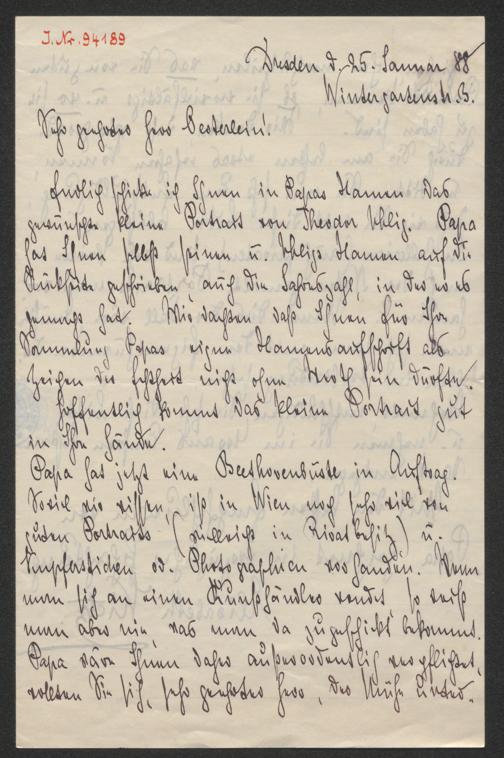 J. Nr. 94189
Dresden d. 25. Januar 88
Wintergartenstr. 13.
Sehr geehrter Herr Oesterlein!
Endlich schicke ich Ihnen in Papas Namen das
gewünschte kleine Portrait von Theodor Uhlig. Papa
hat Ihnen selbst seinen u. Uhligs Namen auf die
Rückseite geschrieben, auch die Jahreszahl, in der er es
gemacht hat. Wir dachten daß Ihnen für Ihre
Sammlung Papas eigne Namensaufschrift als
Zeichen der Echtheit nicht ohne Werth sein dürfte.
Hoffentlich kommt das kleine Portrait gut
in Ihre Hände.
Papa hat jetzt eine Beethovenbüste in Auftrag.
Soviel wir wissen, ist in Wien noch sehr viel von
guten Portraits (vielleicht in Privatbesitz) u.
Kupferstichen od. Photographien vorhanden. Wenn
man sich an einen Kunsthändler wendet, so weiß
man aber nie, was man da zugeschickt bekommt.
Papa wäre Ihnen daher außerordentlich verpflichtet,
wollten Sie sich, sehr geehrter Herr, der Mühe unter-